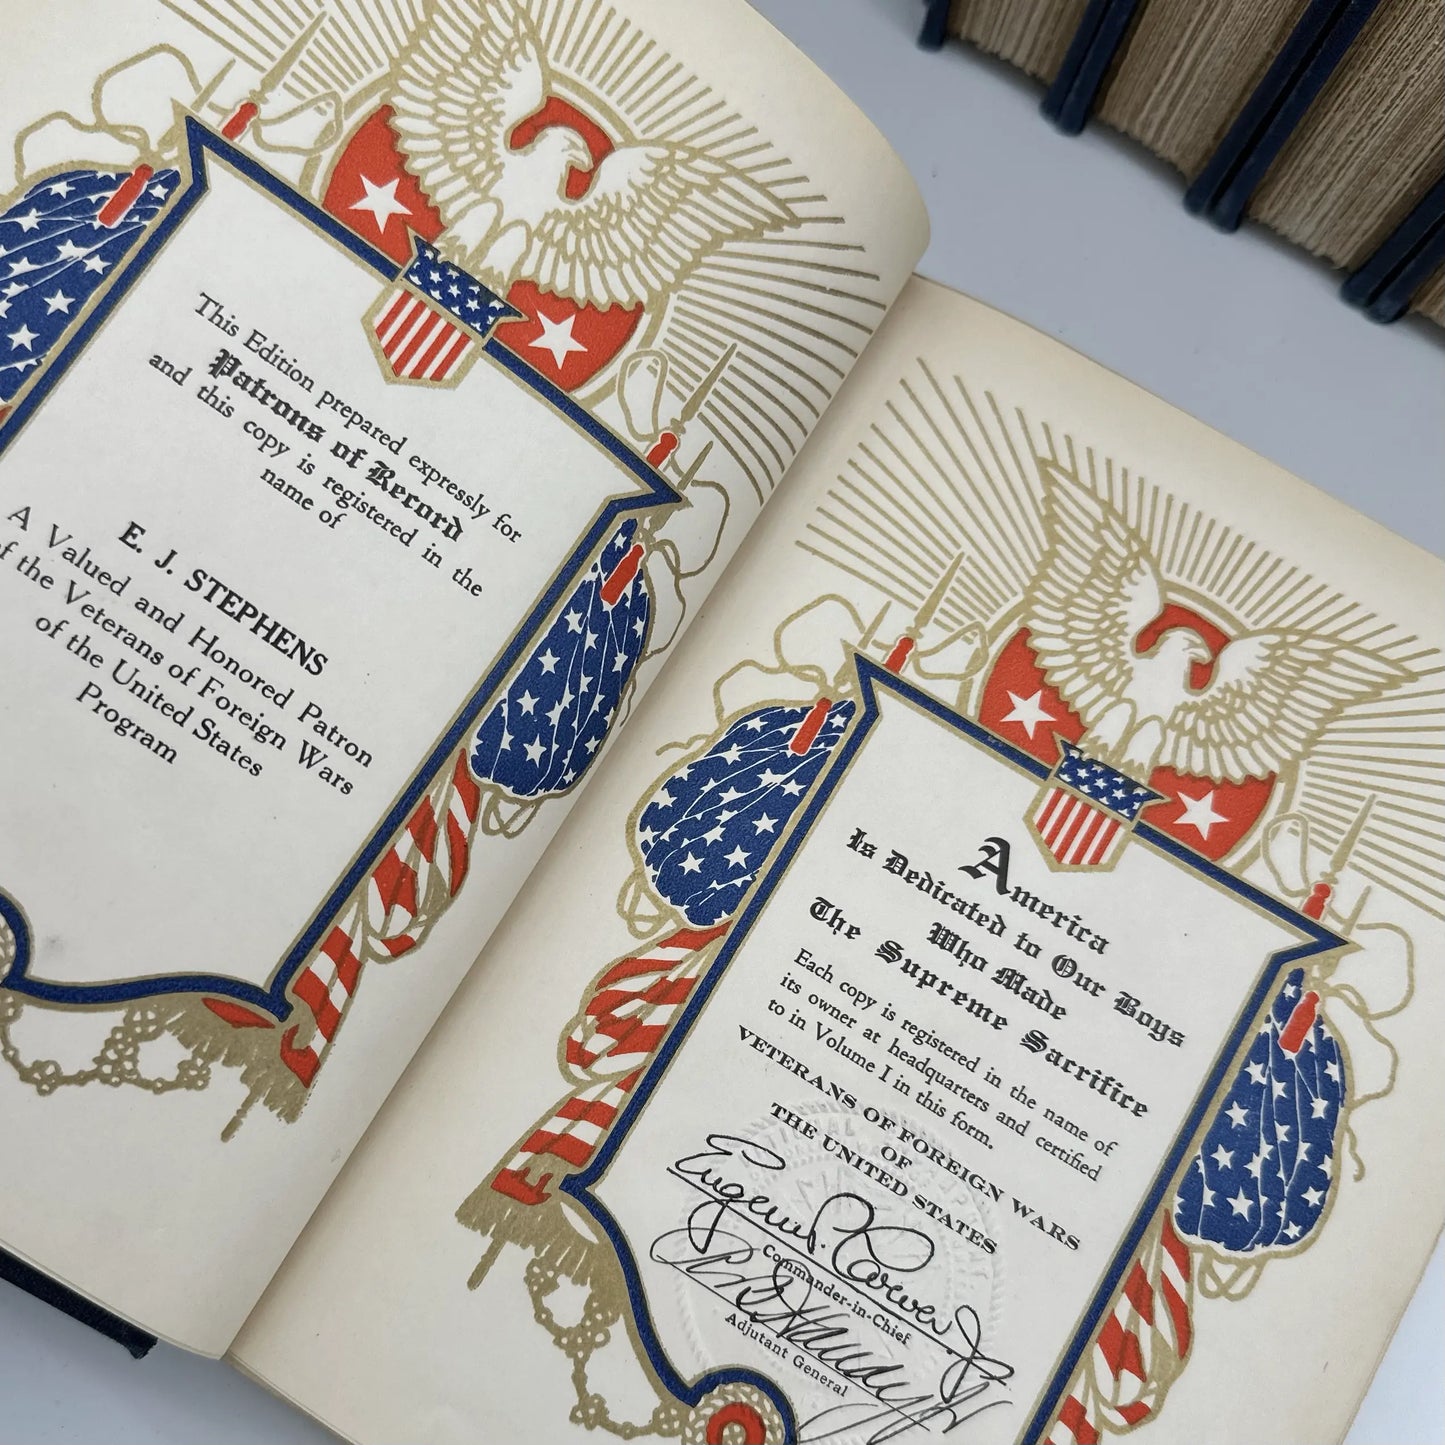 This Edition prepared expressly for
Patrons of Record
and this copy is registered in the
name of
E. J. STEPHENS
A Valued and Honored Patron
of the Veterans of Foreign Wars
of the United States
Program
America
Is Dedicated to Our Boys
Who Made
The Supreme Sacrifice
Each copy is registered in the name of
its owner at headquarters and certified
to in Volume I in this form.
VETERANS OF FOREIGN WARS
OF
THE UNITED STATES
Commander-in-Chief
Adjutant General